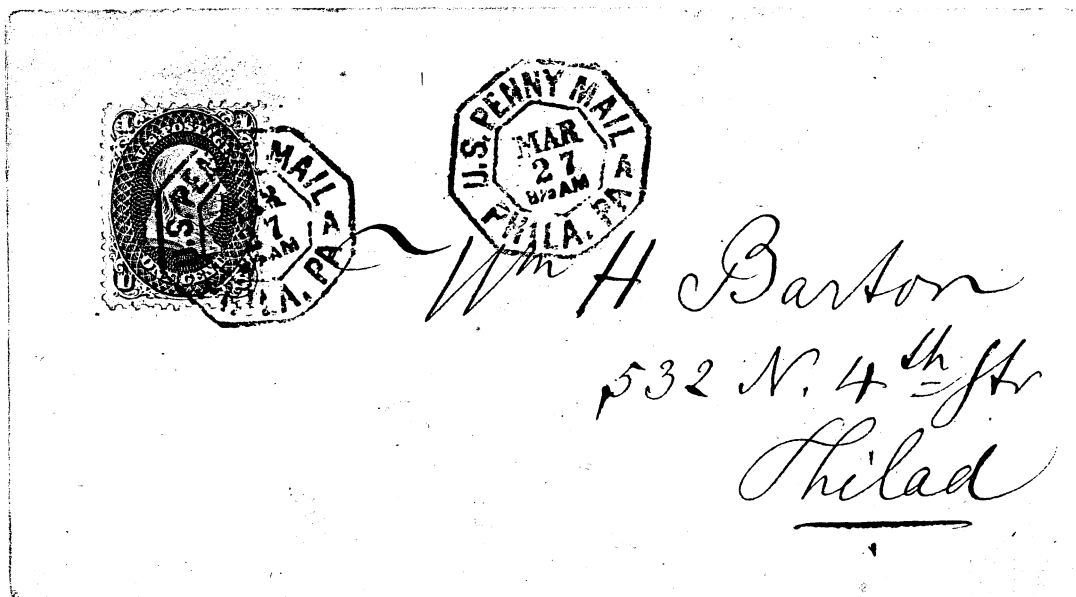 U.S. POSTAGE
1 1
U.S. PEN MAIL
AR
27
8½ AM
A
ILA, PA
U.S. PENNY MAIL
MAR
27
8½ AM
A
PHILA, PA
Wm H Barton
532 N. 4th Str
Philad